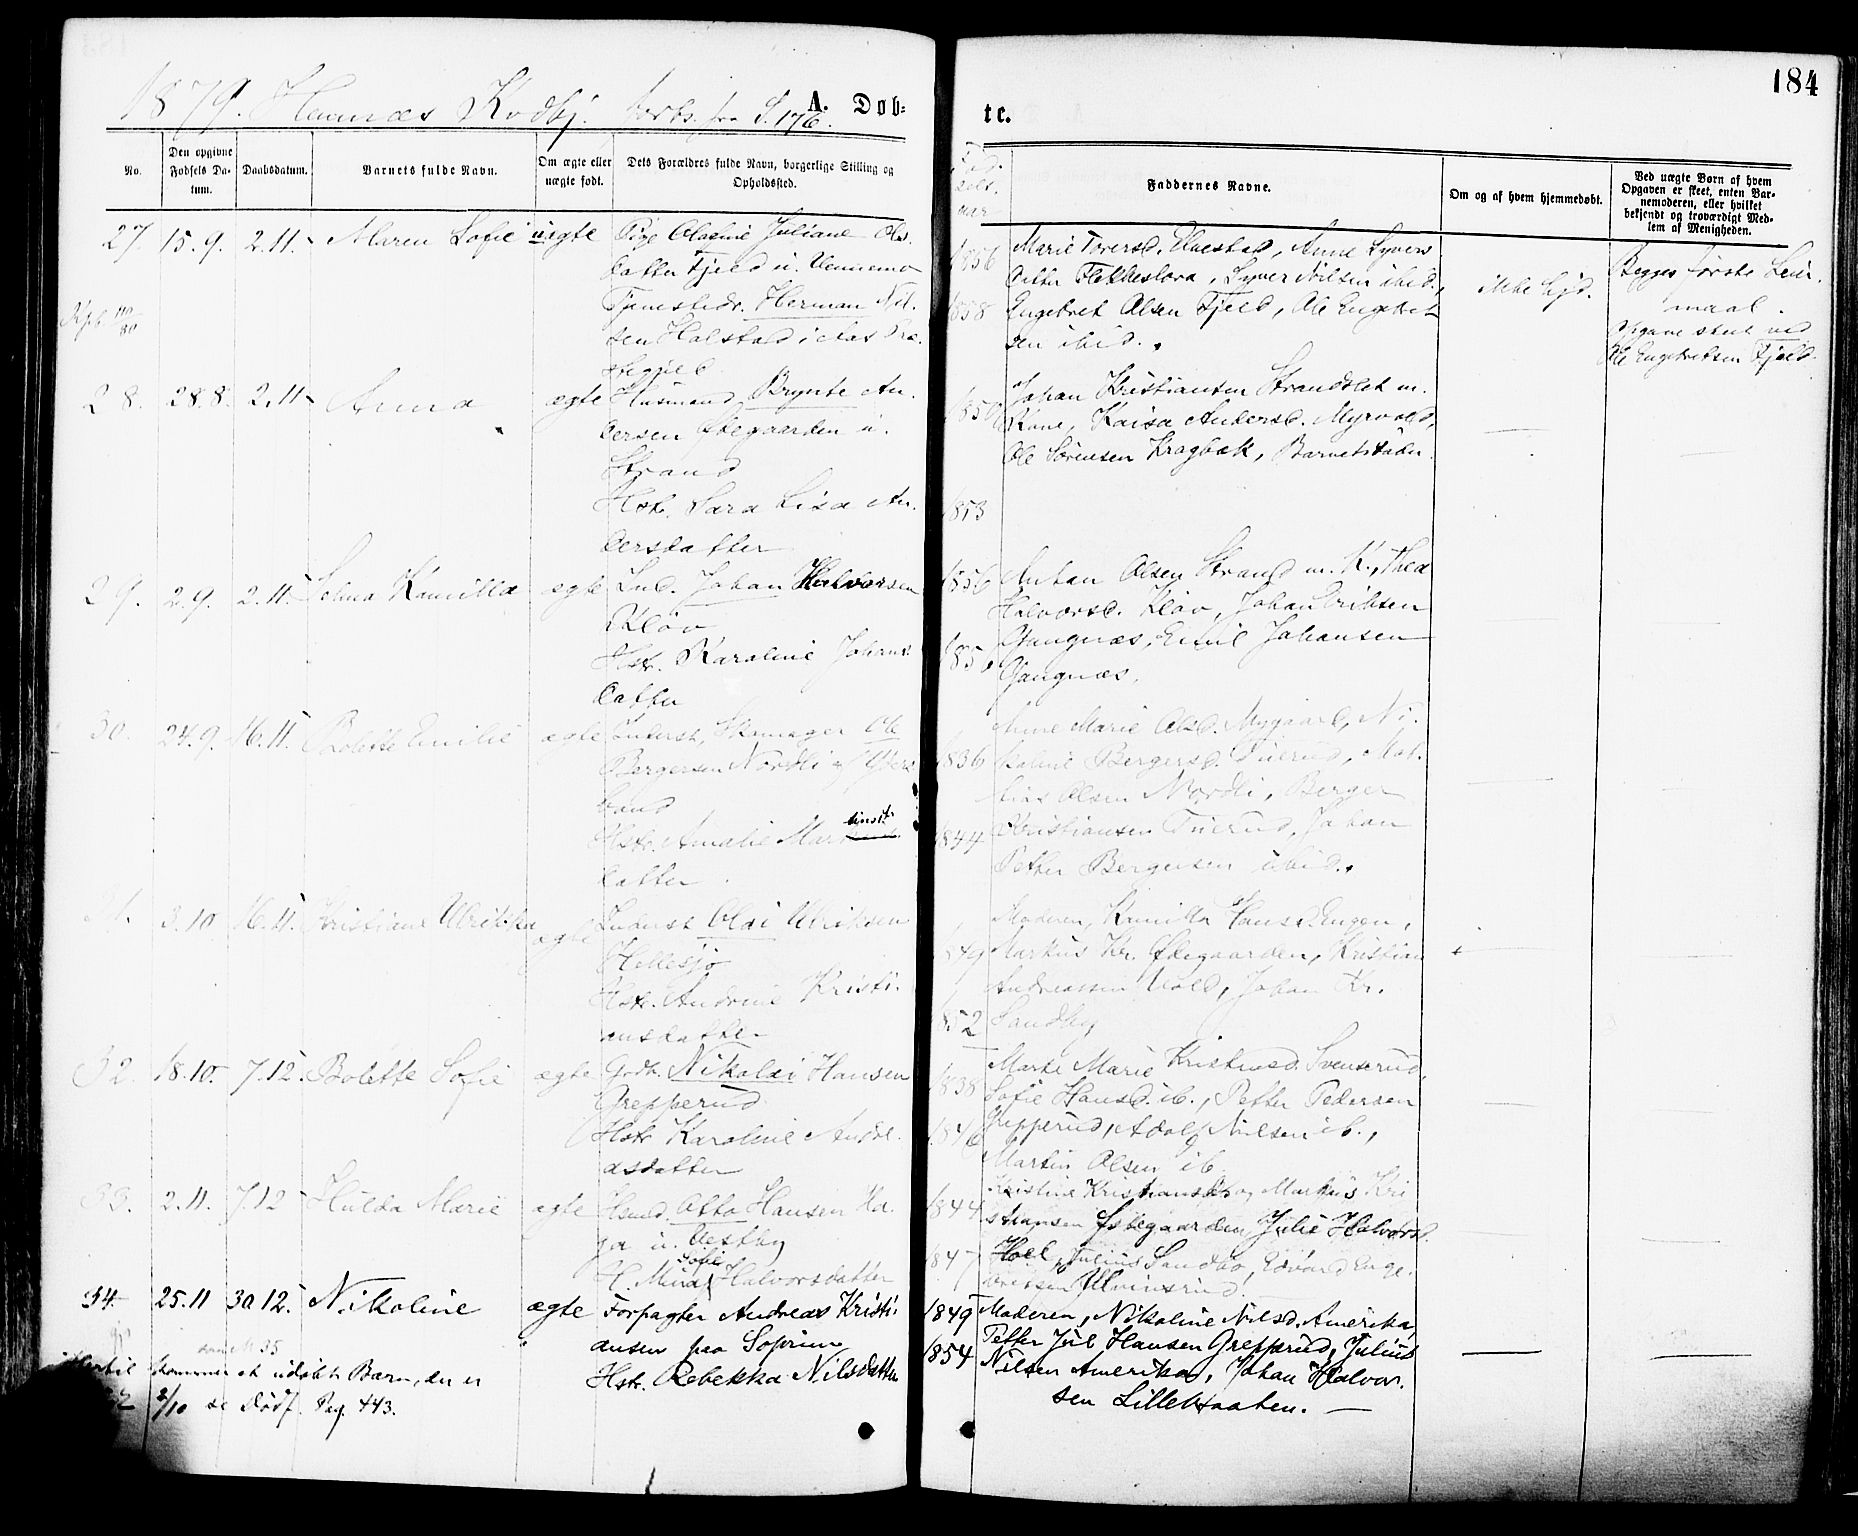 184
1879. Hemnæs Kodbj. forts. fra S. 176.
A. Døb-
te.
No.
Den opgivne Fødsels Da-
tum.
Daabsdatum.
Barnets fulde Navn.
Om ægte eller
uægte født.
Dets Forældres fulde Navn, borgerlige Stilling og
Opholdssted.
Fød-
sels-
aar
Faddernes Navne.
Om og af hvem hjemmedøbt.
Ved uægte Børn af hvem
Opgaven er skeet, enten Bar-
nemoderen, eller hvilket
bekjendt og troværdigt Med-
lem af Menigheden.
27. 15.9. 2.11. Maren Sofie uægte
Pige Juliane Ols-
datter Fjeld u.
Herman Nil-
sen Holstad
1856
1858
Marie
datter Flekkeslora, Syver Nilsen ibid.,
Engebret Olsen Fjeld, Ole Engebret-
sen ibid.
Ikke hjd.
Begges første Leier-
maal.
Opgave skeet ved
Ole Engebretsen Fjeld.
28. 28.8. 2.11. Anna ægte
Husmand Brynte An-
dersen Ødegaarden u.
Strand
Hstr. Sara Lisa An-
dersdatter
1850
1853
Johan Kristiansen Strandslet m.
Kone, Kaisa Andersd. Myrvold,
Ole Sørensen Kragbæk, Barnets Fader.
29. 2.9. 2.11. Selma Kamilla ægte
Ind. Johan Halvorsen
Kløv
Hstr. Karoline Johans-
datter
1856
185
Anton Olsen Strand m. K., Thea
Halvorsd. Kløv, Johan Eriksen
Gangnæs, Emil Johansen
Gangnæs.
30. 24.9. 16.11. Bolette Emilie ægte
Inderst, Skomager Ole
Bergersen Nordli
Hstr. Amalie Mar
datter
1836
1844
Anne Marie Olsd. Nygaard, Ni-
koline Bergersd. Tuerud, Mat-
hias Olsen Nordli, Berger
Kristiansen Tuerud, Johan
Petter Bergersen ibid.
31. 3.10 16.11. Kristiane Ulrikka ægte
Inderst Olai Ulriksen
Hellesjø
Hstr. Andrine Kristi-
ansdatter
1849
1852
Moderen, Kamilla Hansd. Engen,
Markus Kr. Ødegaarden, Kristian
Andreassen Vold, Johan Kr.
Sandby
32. 18.10. 7.12. Bolette Sofie ægte
Gdb. Nikolai Hansen
Grepperud
Hstr. Karoline Andre-
asdatter
1838
1846
Marte Marie Kristiansd. Svenserud,
Sofie Hansd. ib., Petter Pedersen
Grepperud, Adolf Nilsen ib.,
Martin Olsen ib.
33. 2.11. 7.12 Hulda Marie ægte
Hsmd. Otto Hansen Ha-
ga u. Vestby
H. Mina Sofie Halvorsdatter
1844
1847
Kristine Kristiansd. og Markus Kri-
stiansen Ødegaarden, Julie Halvorsd.
Hoel, Julius Sandbo, Edvard Enge-
bretsen
34. 25.11 30.12. Nikoline ægte
Forpagter Andreas Kristi-
ansen paa Soprim
Hstr. Rebekka Nilsdatter
1849
1854
Moderen, Nikoline Nilsd. Amerika,
Petter Jul. Hansen Grepperud, Julius
Nilsen Amerika, Johan Halvor-
sen Lillekraaken.
som № 35
Hertil kommer et udøbt Barn, der er
2/10 se Dødf. Pag. 443.